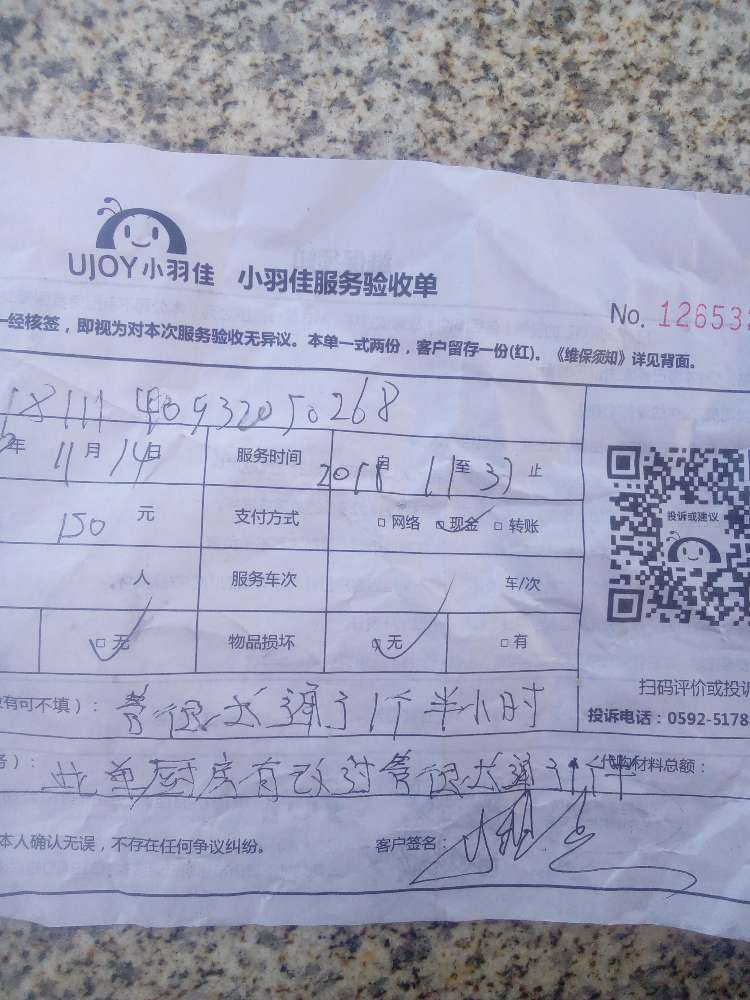 UJOY小羽佳 小羽佳服务验收单
No. 126533
一经核签，即视为对本次服务验收无异议。本单一式两份，客户留存一份(红)。《维保须知》详见背面。
年 11月14日 服务时间 2018 自 11 至 37 止
投诉或建议
150 元 支付方式 □网络 □现金 □转账
人 服务车次 车/次
□无 物品损坏 □无 □有
扫码评价或投诉
没有可不填）： 管很长 通了1个半小时
投诉电话：0592-5178
务）： 此单厨房有改过管很长通了1个半
代购材料总额：
本人确认无误，不存在任何争议纠纷。 客户签名：